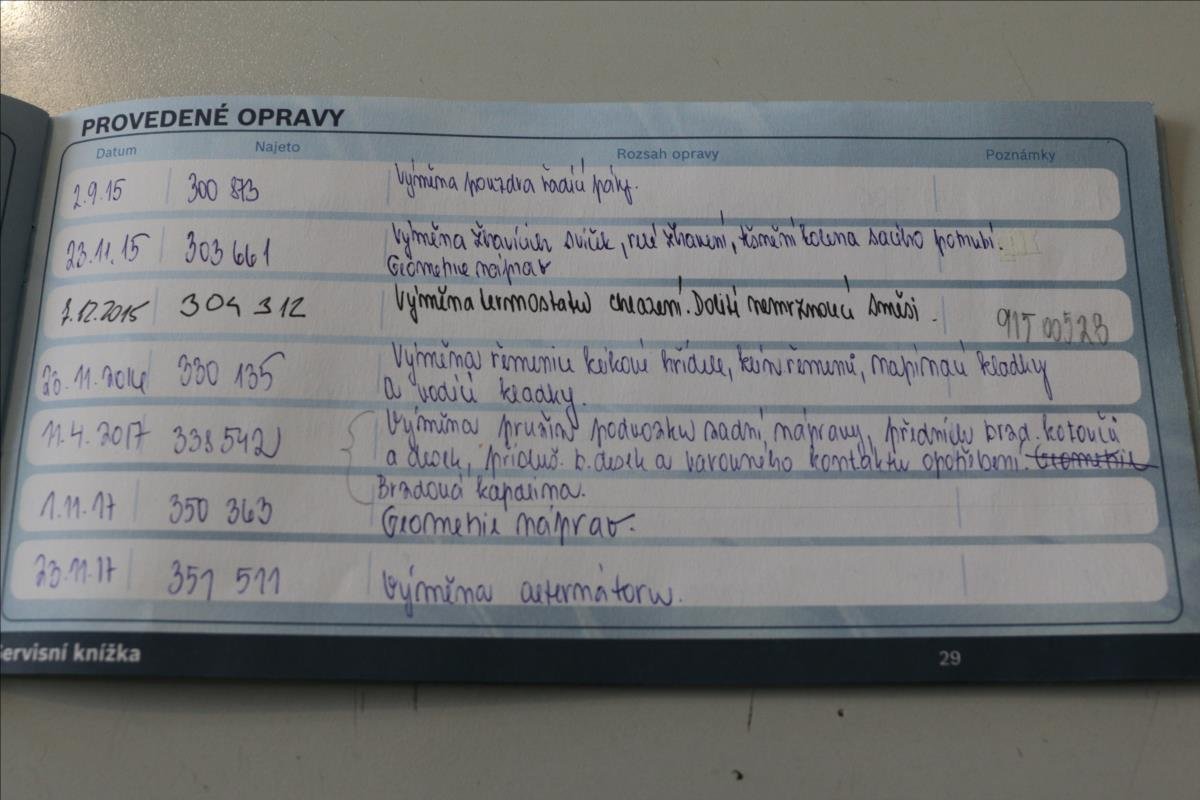 PROVEDENÉ OPRAVY
Datum Najeto Rozsah opravy Poznámky
2.9.15 300 873 Výměna pouzdra řadící páky.
23.11.15 303 661 Výměna žhavících svíček, relé žhavení, těsnění kolena sacího potrubí.
Geometrie náprav
7.12.2015 304 312 Výměna termostatu chlazení. Dolití nemrznoucí směsi. 91500523
330 135 Výměna řemenice klikové hřídele, klín. řemenů, napínací kladky
a vodící kladky.
11.4.2017 338542 Výměna pružin podvozku zadní nápravy, předních brzd. kotoučů
a desek, přísluš. b. desek a varovného kontaktu opotřebení. Geometrie
Brzdová kapalina.
1.11.17 350 363 Geometrie náprav.
23.11.17 351 511 Výměna alternátoru.
ervisní knížka 29